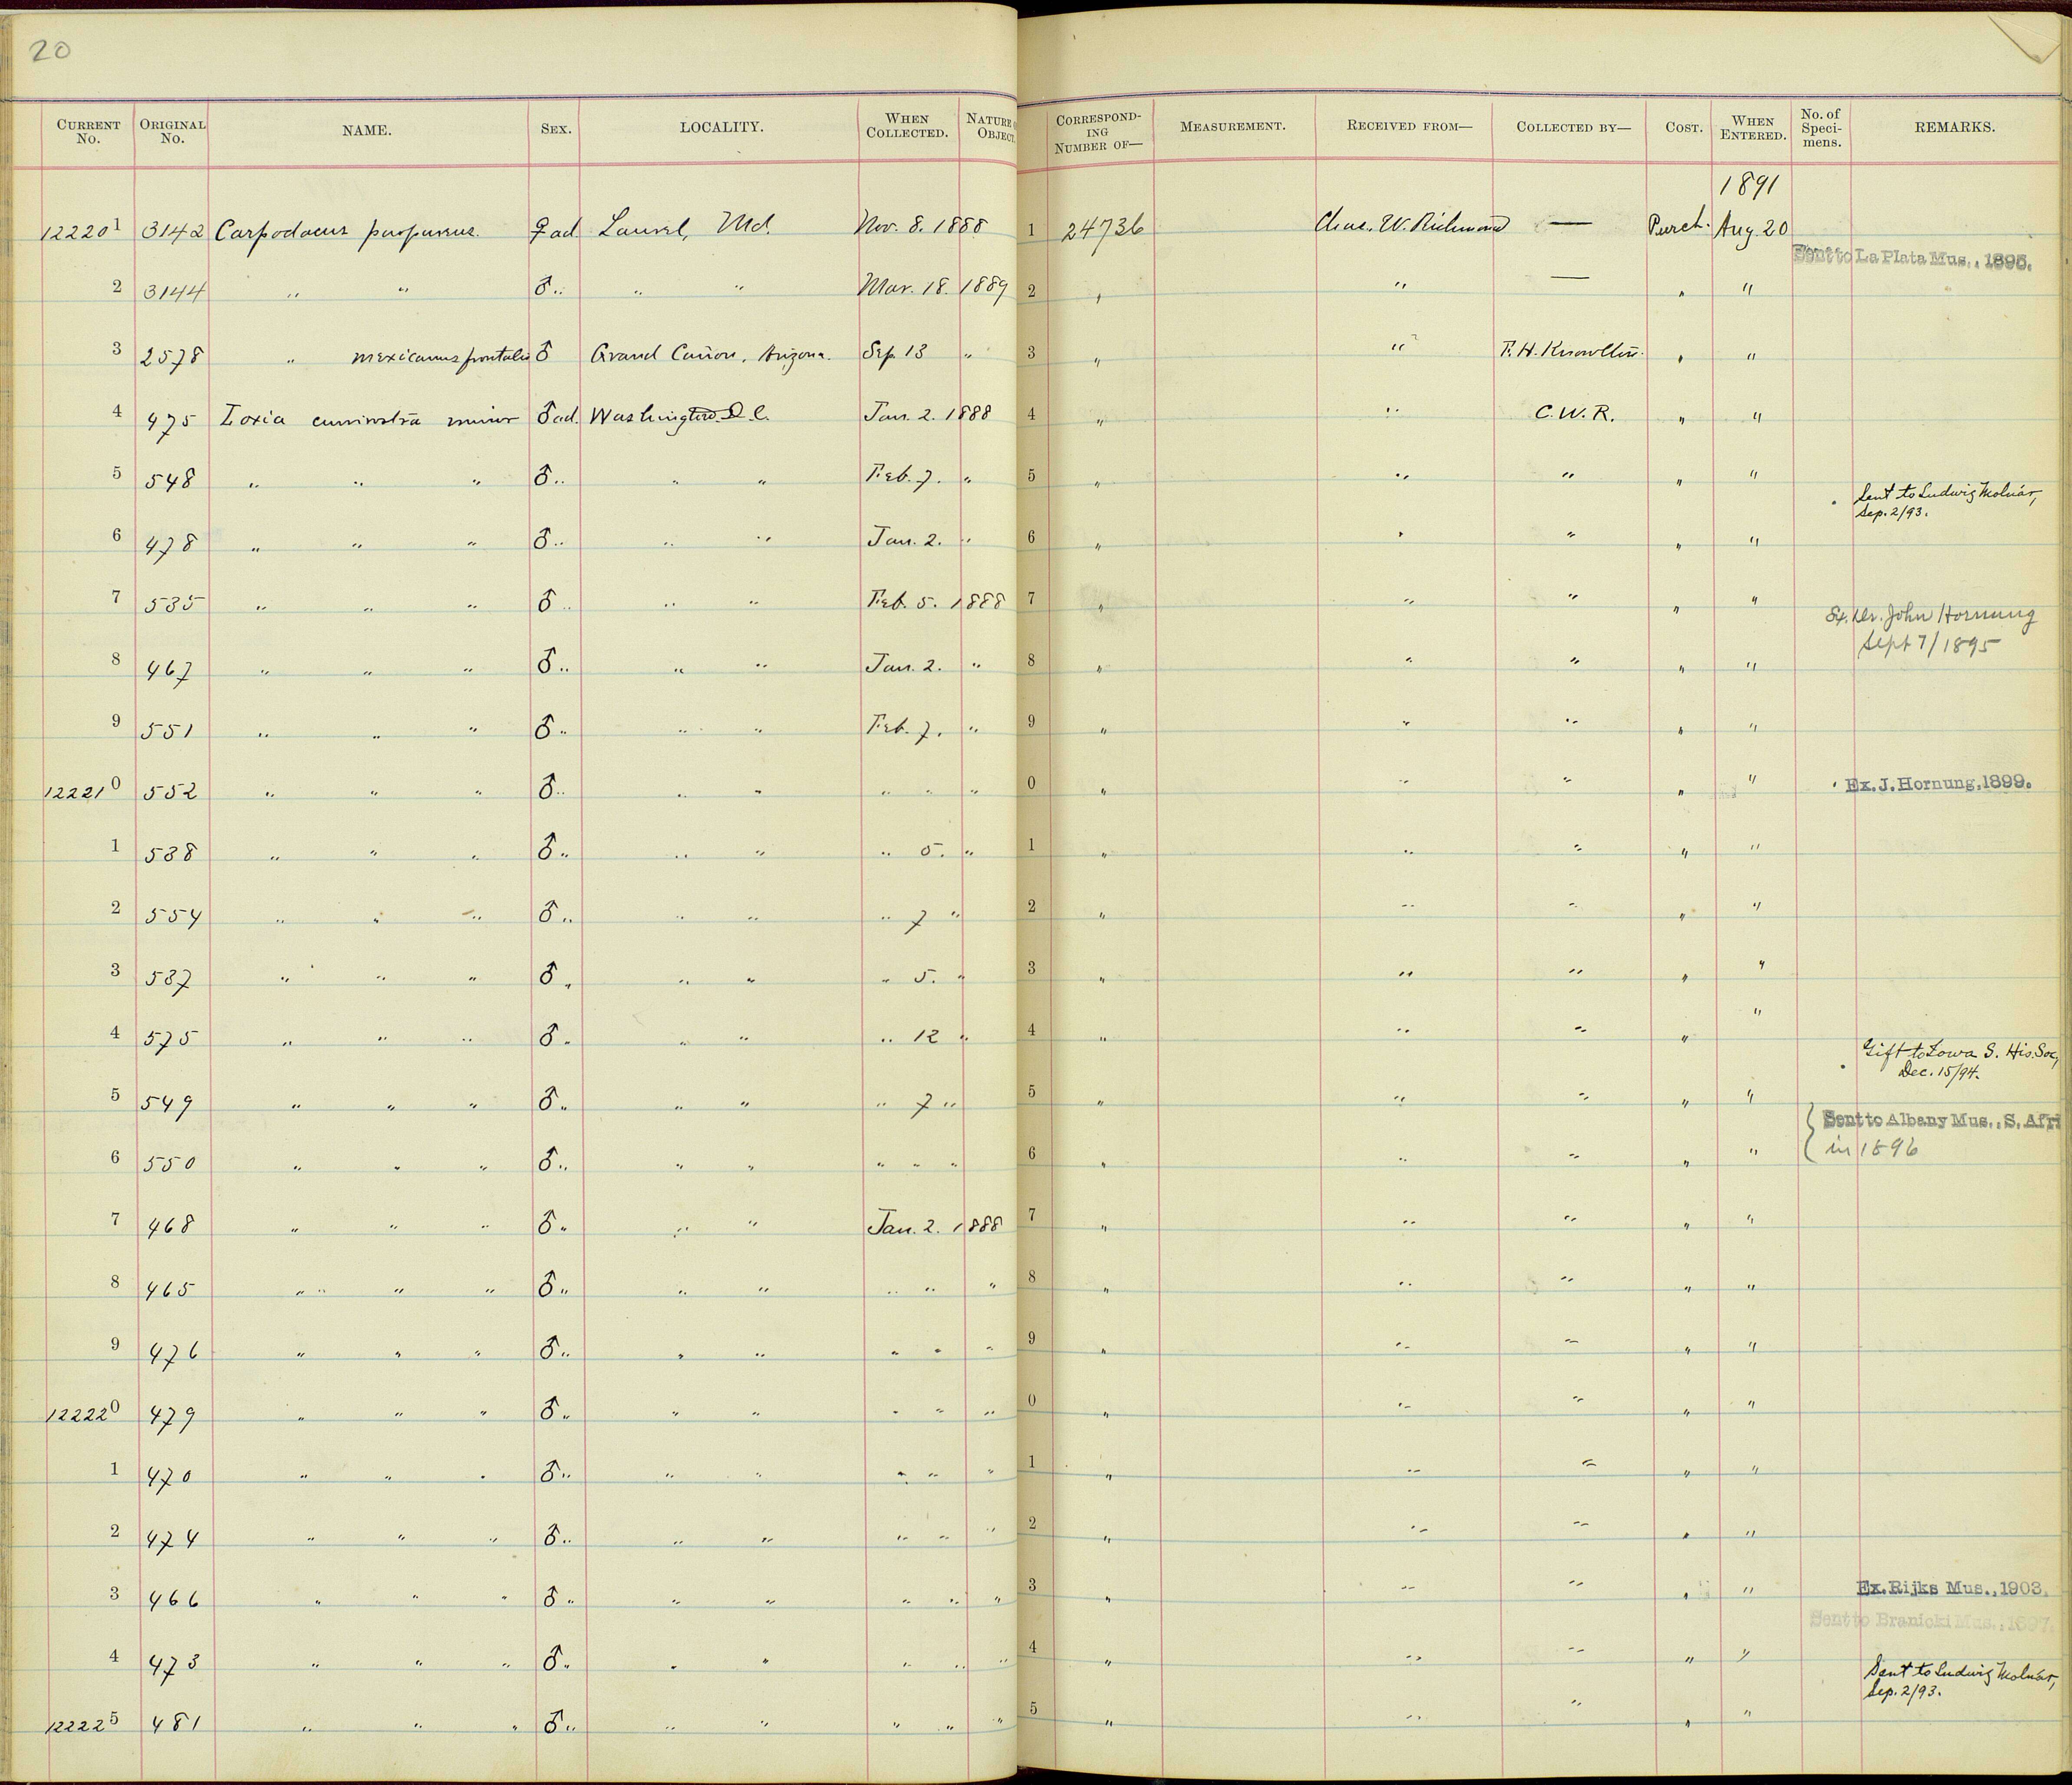 20
CURRENT No. ORIGINAL No. NAME. SEX. LOCALITY. WHEN COLLECTED. NATURE OBJECT. CORRESPONDING NUMBER OF— MEASUREMENT. RECEIVED FROM— COLLECTED BY— COST. WHEN ENTERED. No. of Specimens. REMARKS.
1891
122201 3142 Carpodacus purpureus. ♀ ad. Laurel, Md. Nov. 8. 1888 1 24736 Chas. W. Richmond — Purch. Aug. 20
Sent to La Plata Mus., 1895.
2 3144 " " ♂ " " " Mar. 18. 1889 2 " " — " "
3 2578 " mexicanus frontalis ♂ Grand Cañon, Arizona. Sep. 13 " 3 " " F. H. Knowlton. " "
4 475 Loxia curvirostra minor ♂ ad. Washington D.C. Jan. 2. 1888 4 " " C. W. R. " "
5 548 " " " ♂ " " " Feb. 7. " 5 " " " " "
Sent to Ludwig Molnár,
Sep. 2/93.
6 478 " " " ♂ " " " Jan. 2. " 6 " " " " "
7 535 " " " ♂ " " " Feb. 5. 1888 7 " " " " "
Ex. Dr. John Hornung
Sept 7/1895
8 467 " " " ♂ " " " Jan. 2. " 8 " " " " "
9 551 " " " ♂ " " " Feb. 7. " 9 " " " " "
122210 552 " " " ♂ " " " " " " 0 " " " " " Ex. J. Hornung, 1899.
1 538 " " " ♂ " " " " 5. " 1 " " " " "
2 554 " " " ♂ " " " " 7 " 2 " " " " "
3 537 " " " ♂ " " " " 5. " 3 " " " " "
4 575 " " " ♂ " " " " 12 " 4 " " " " "
Gift to Iowa S. His. Soc,
Dec. 15/94.
5 549 " " " ♂ " " " " 7 " 5 " " " " "
Sent to Albany Mus., S. Afri
in 1896
6 550 " " " ♂ " " " " " " 6 " " " " "
7 468 " " " ♂ " " " Jan. 2. 1888 7 " " " " "
8 465 " " " ♂ " " " " " " 8 " " " " "
9 476 " " " ♂ " " " " " " 9 " " " " "
122220 479 " " " ♂ " " " " " " 0 " " " " "
1 470 " " " ♂ " " " " " " 1 " " " " "
2 474 " " " ♂ " " " " " " 2 " " " " "
3 466 " " " ♂ " " " " " " 3 " " " " " Ex. Rijks Mus., 1903.
Sent to Branicki Mus., 1897.
4 473 " " " ♂ " " " " " " 4 " " " " "
Sent to Ludwig Molnár,
Sep. 2/93.
122225 481 " " " ♂ " " " " " " 5 " " " " "